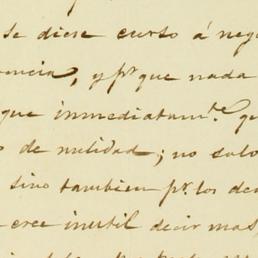 se diese curso á neg
encia, y pr. que nada
que inmediatamte. qu
de nulidad; no solo
sino tambien pr. los de
cree inutil decir mas,